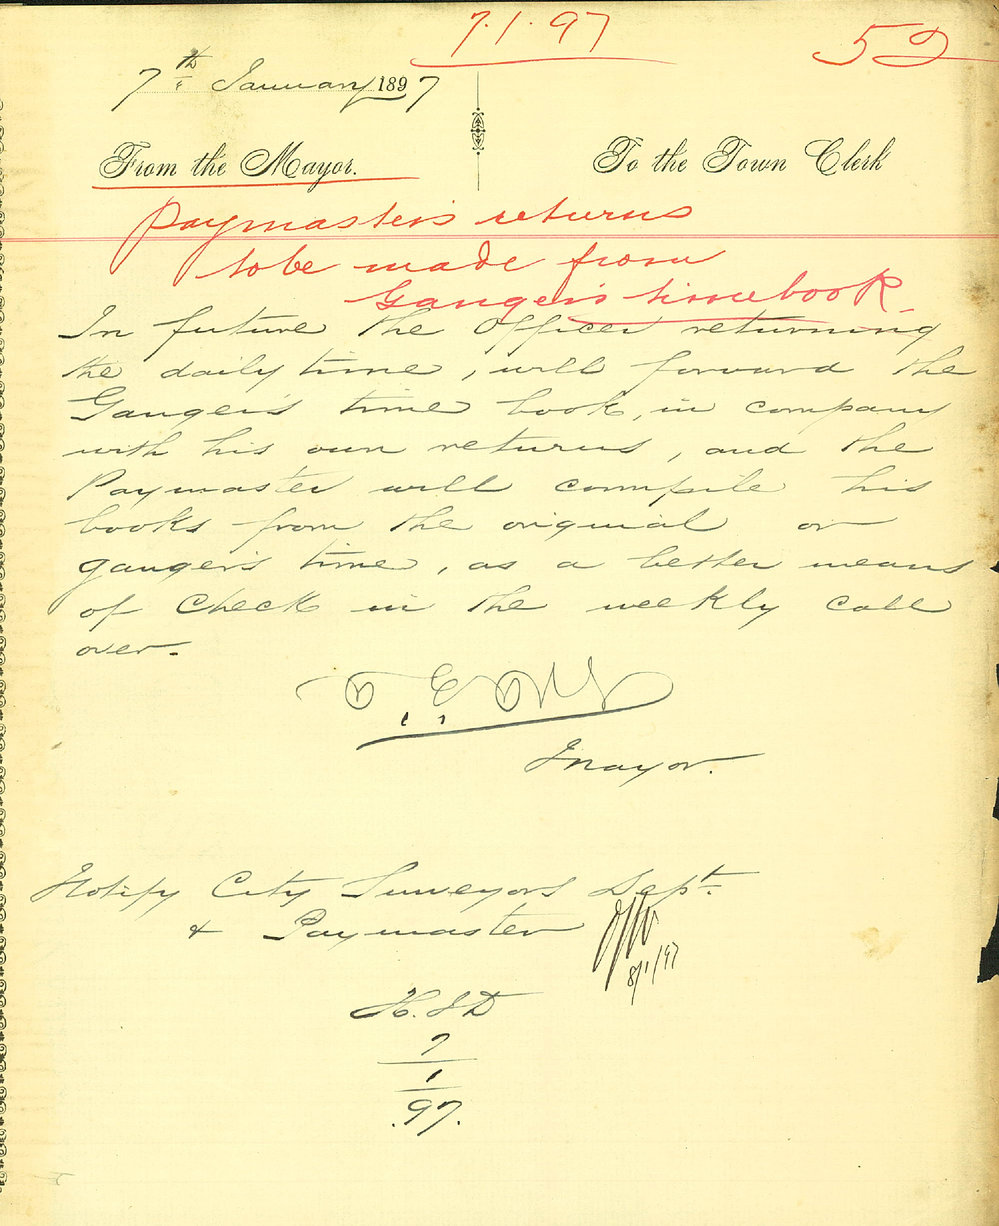 7.1.97
52
7th January 1897
From the Mayor.
To the Town Clerk
Paymaster's returns
to be made from
Ganger's time book.
In future the Officer returning
the daily time, will forward the
Ganger's time book, in company
with his own returns, and the
Paymaster will compile his
books from the original or
ganger's time, as a better means
of check in the weekly call
over.
Mayor.
Notify City Surveyors Dept.
& Paymaster
8/1/97
H.S.D
7
1
.97.